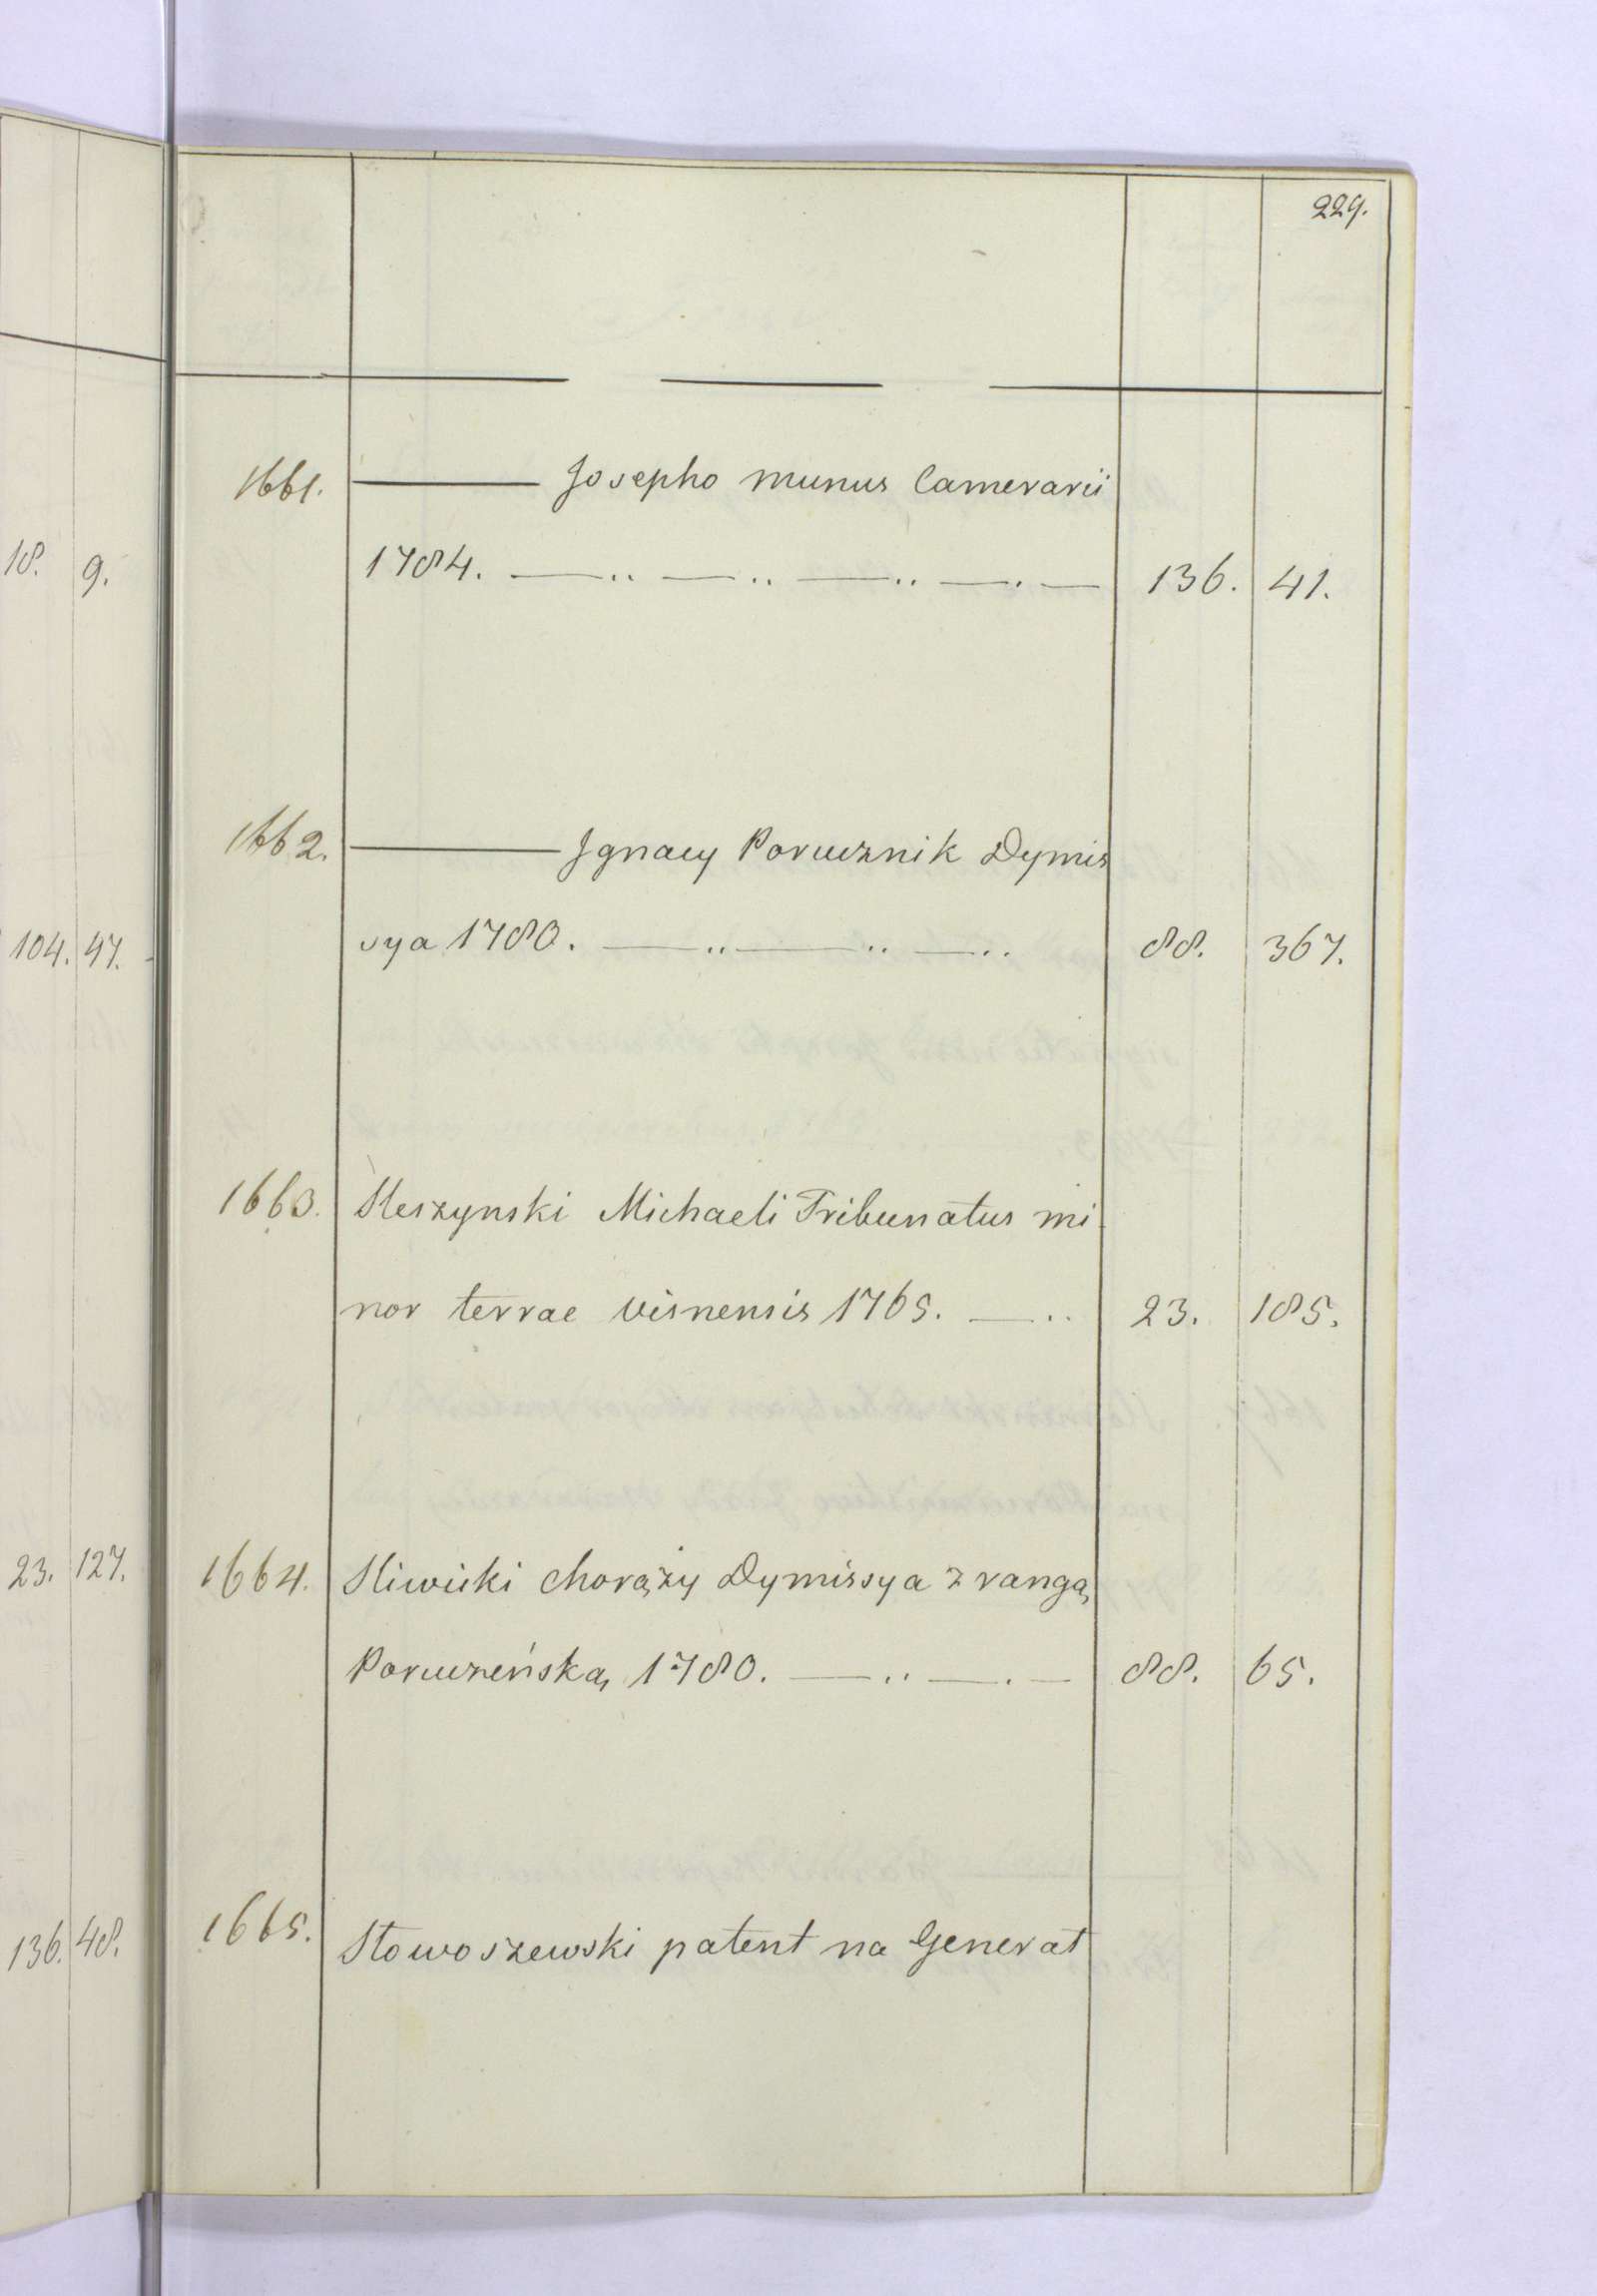 229.
1661. ——— Josepho munus Camerarii
1784. —..—..—..—.— 136. 41.
1662. ——— Jgnacy Porucznik Dymis
sya 1780. —..—..—.. 88. 367.
1663. Sleszynski Michaeli Tribunatus mi
nor terrae Visnensis 1765. —.. 23. 185.
1664. Sliwicki chorąży Dymissya z rangą
Poruczeńską 1780. —..—.— 88. 65.
1665. Słowoszewski patent na Generał
18. 9.
104. 47.
23. 127.
136. 48.